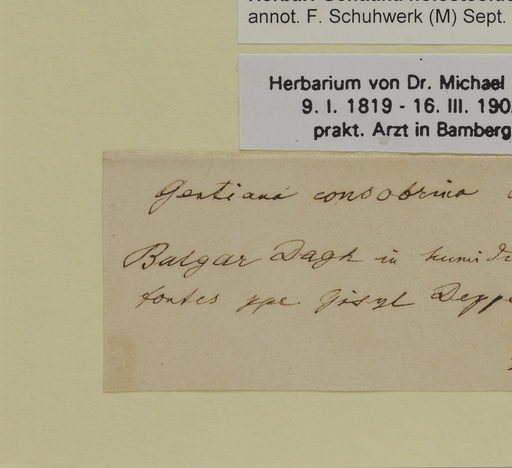 annot. F. Schuhwerk (M) Sept.
Herbarium von Dr. Michael
9. I. 1819 - 16. III. 190
prakt. Arzt in Bamberg
Gentiana consobrina
Bulgar Dagh in humidis
fontes ppe Gisyl Deppe